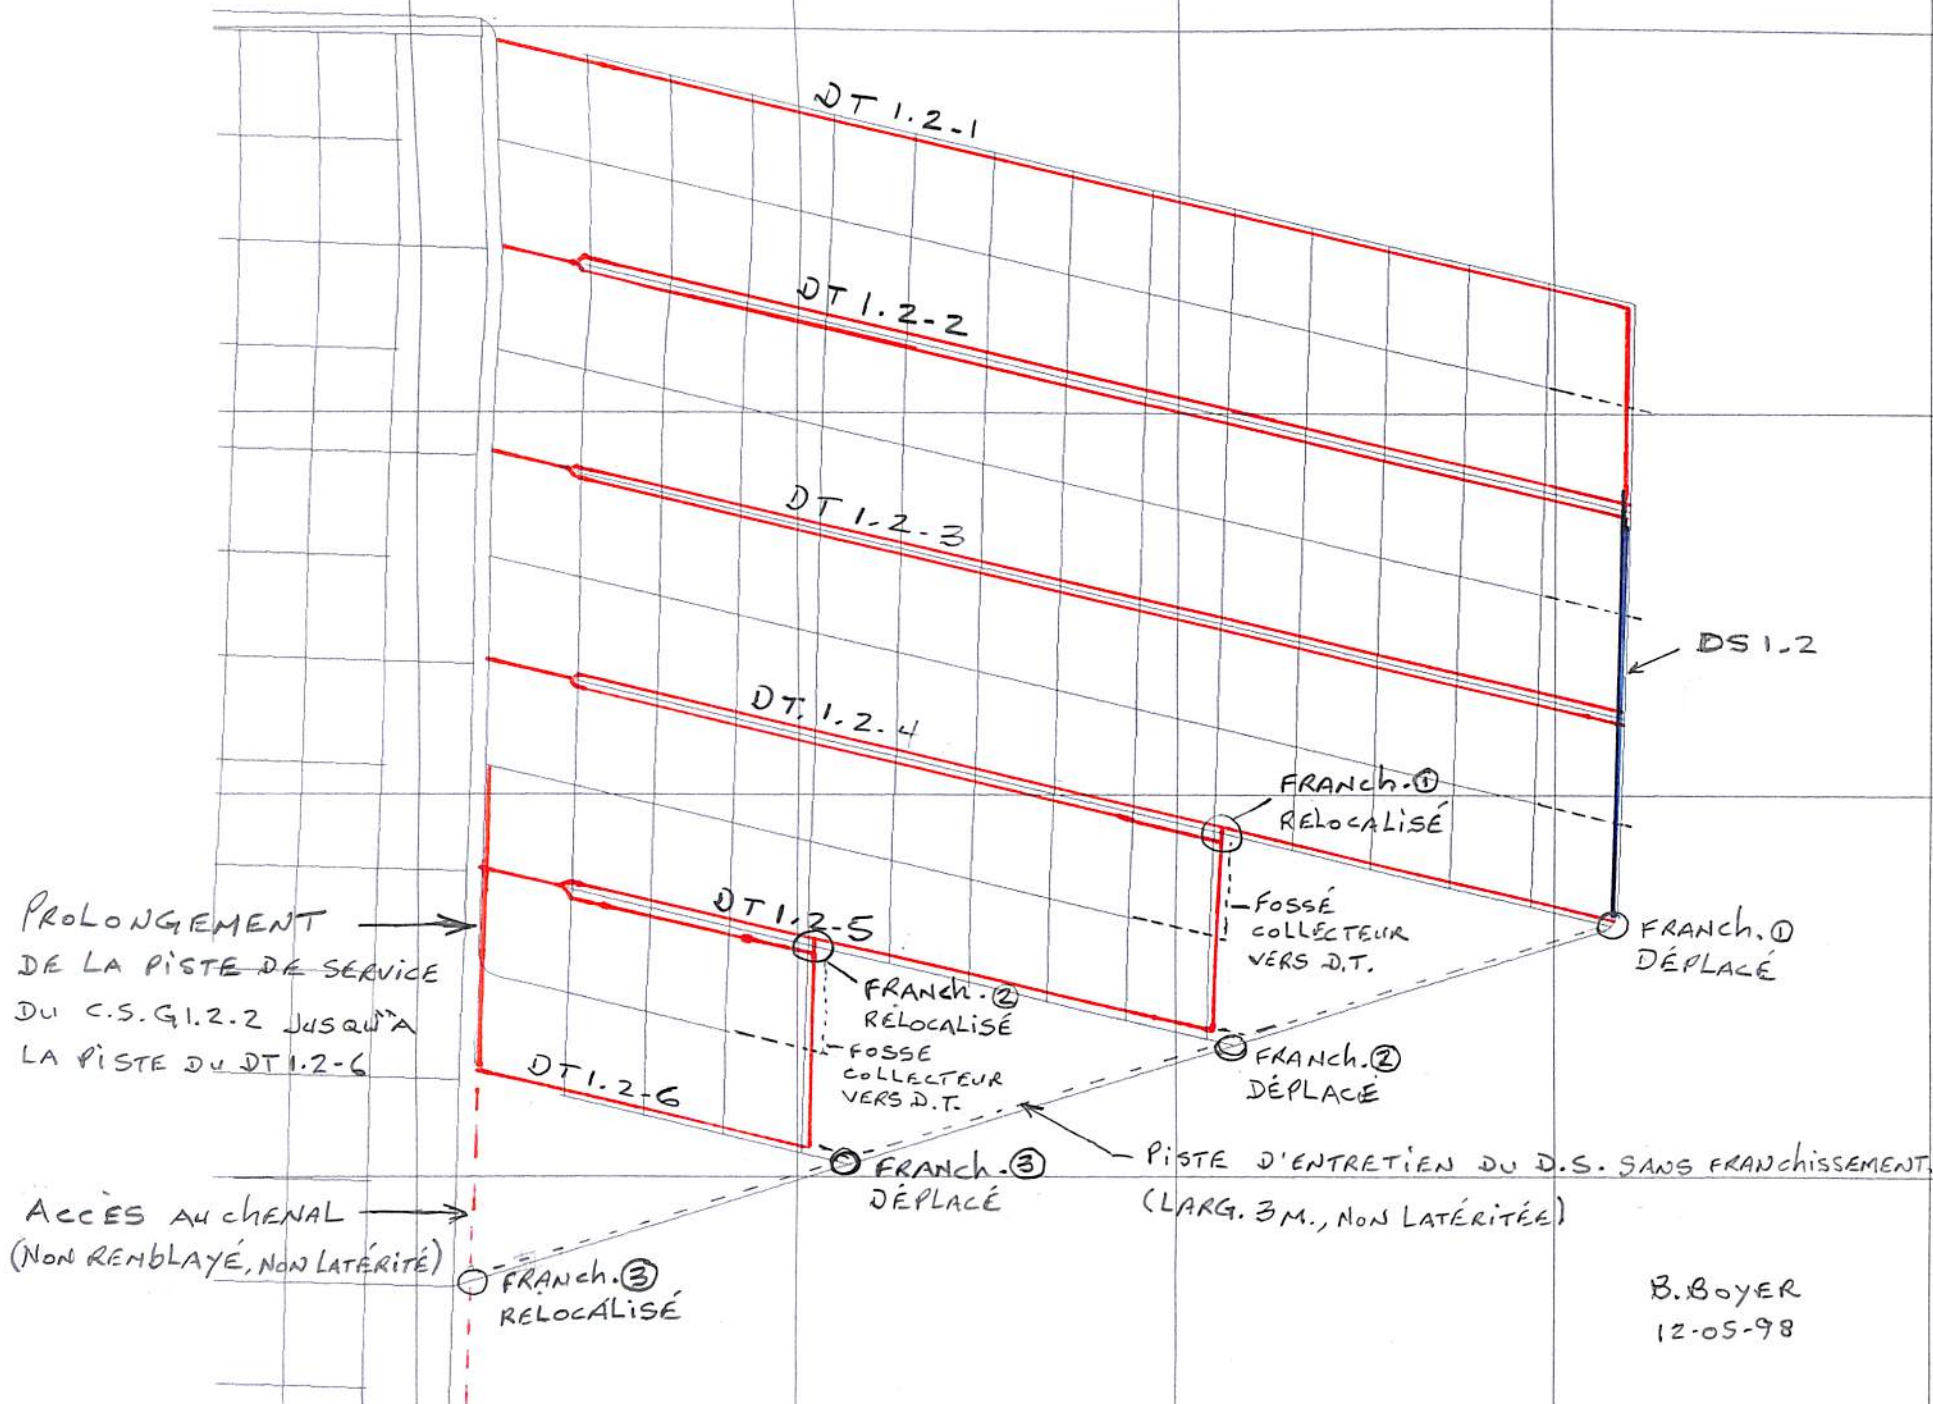 DT 1.2-1
DT 1.2-2
DT 1.2-3
DS 1.2
DT. 1.2-4
FRANCh. ①
RELOCALiSÉ
DT 1.2-5
FOSSÉ
COLLECTEUR
VERS D.T.
FRANCh. ①
DÉPLACÉ
PROLONGEMENT
DE LA PiSTE DE SERViCE
DU C.S.G1.2.2 JUSQU'À
LA PiSTE DU DT 1.2-6
FRANCh. ②
RELOCALiSÉ
FOSSE
COLLECTEUR
VERS D.T.
DT 1.2-6
FRANCh. ②
DÉPLACÉ
FRANCh. ③
DÉPLACÉ
PiSTE D'ENTRETiEN DU D.S. SANS FRANChiSSEMENT.
(LARG. 3 M., NON LATÉRiTÉE)
ACCÈS AU ChENAL
(NON REMBLAYÉ, NON LATÉRiTÉ)
FRANCh. ③
RELOCALiSÉ
B. BOYER
12-05-98